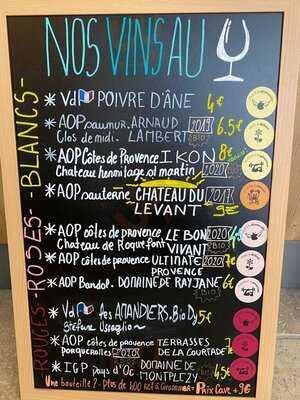 NOS VINS AU
BLANCS-
* Vd POIVRE D'ÂNE 4€
* AOP saumur. ARNAUD 2019 6.5€
Clos de midi. LAMBERT BIO
* AOP Côtes de Provence IKON 8€
Chateau hermitage st martin 2020
* AOP sauterne CHATEAU DU 2017
LEVANT 9€
ROSES-
* AOP côtes de provence LE BON 2020
Chateau de Roquefort VIVANT BIO
* AOP côtes de provence ULTIMATE 2020 7€
PROVENCE
* AOP Bandol. DOMAINE DE RAY JANE 6€
BIO
ROUGES-
* Vd Les AMANDIERS. BioDy 5€
Stefane Usseglio
* AOP côtes de provence TERRASSES 7€
Porquerolles 2020 DE LA COURTADE
* IGP pays d'Oc DOMAINE DE 4.5€
MONTPLEZY
Une bouteille? - Plus de 400 réf à Prix Cave + 9€